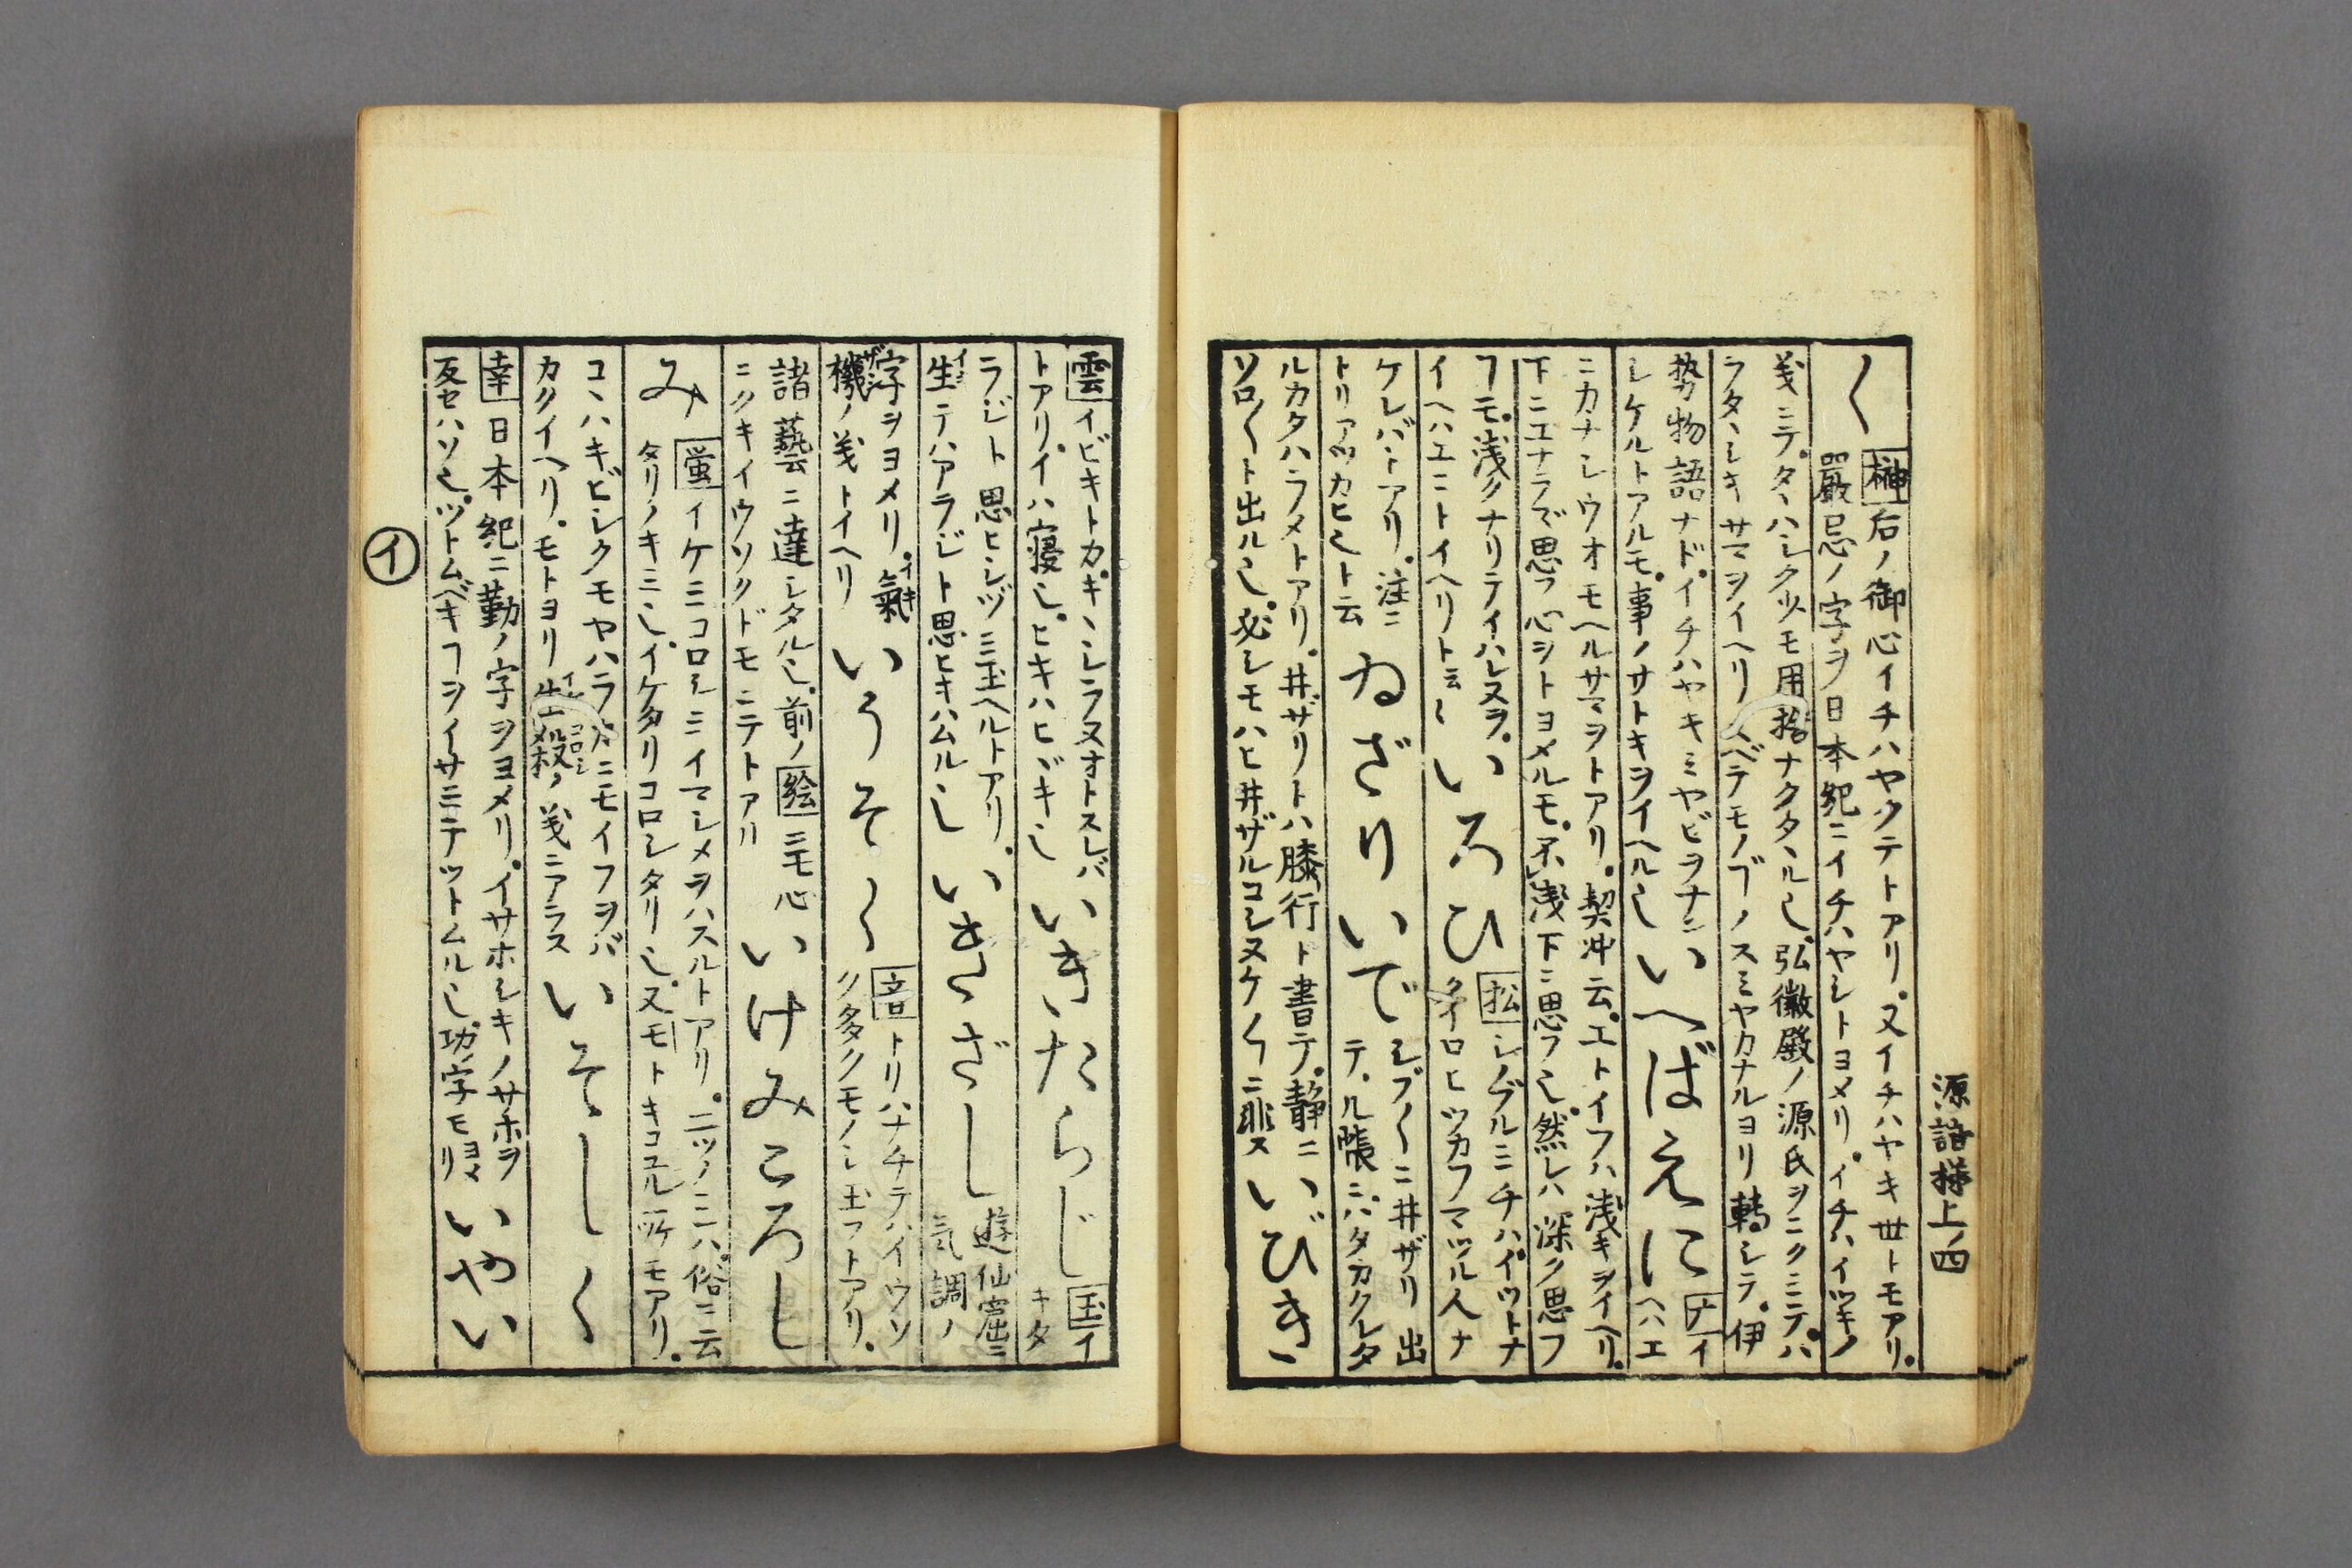 源語梯上ノ四
く
榊 后ノ御心イチハヤクテトアリ。又イチハヤキ世トモアリ。
嚴忌ノ字ヲ日本紀ニイチハヤシトヨメリ。イチハイツキノ
義ニテ。タヽハシク少モ用捨ナクタヽルし。弘徽殿ノ源氏ヲニクミテ。ハ
ラタヽシキサマヲイヘリ
スベテモノゴノスミヤカナルヨリ轉シテ。伊
勢物語ナド。イチハヤキミヤビヲナン
シケルトアルモ。事ノサトキヲイヘルし
いへばえに
ナ イヘハエ
ニカナシウオモヘルサマヲトアリ。契冲云。エトイフハ浅キヲイヘリ。
下ニエナラデ思フ心ヲトヨメルモ。不浅下ニ思フし。然レハ深ク思フ
フモ。浅クナリテイハレヌヲ。
イヘハエニトイヘリト云〻
いろひ
松 シノブルニチハイツトナ
クイロヒツカフマツル人ナ
ケレバトアリ。注ニ
トリアツカヒしト云
ゐざりいで
シブ〱ニ井ザリ出
テヽル帳ニハタカクレタ
ルカタハラメトアリ。井ザリトハ膝行ト書テ。静ニ
ソロ〱ト出ルし。必シモハヒ井ザルコレヌケ〱ニ非ス
いびきゝ
雲 イビキトカ。キヽシラヌオトスレバ
トアリ。イハ寝し。ヒキハヒヾキし
いきたらじ
玉 イ
キタ
ラジト思ヒシヅミ玉ヘルトアリ。
生テハアラジト思ヒキハムルし
いきざし
遊仙窟ニ
気調ノ
字ヲヨメリ。氣
機ノ義トイヘリ
いうそく
音 トリハナチテハイウソ
ク多クモノし玉フトアリ。
諸藝ニ達シタルし。前ノ 絵 ニモ心
ニクキイウソクドモニテトアリ
いけみころし
み
蛍 イケミコロシミイマシメヲハスルトアリ。二ツノミハ。俗ニ云
タリノキミし。イケタリコロシタリし。又モトキコユル所モアリ。
コヽハキビシクモヤハラカニモイフヲバ
カクイヘリ。モトヨリ生殺ノ義ニアラス
いそしく
幸 日本紀ニ勤ノ字ヲヨメリ。イサホシキノサホヲ
反セハソし。ツトムベキフヲイサミテツトムルし。功ノ字モヨメリ
いやい
イ